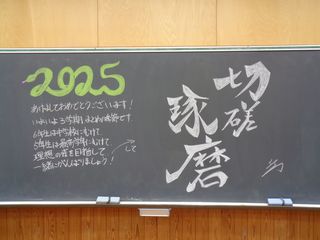 2025
あけましておめでとうございます！
いよいよ3学期！まとめの季節です。
6年生は中学校にむけて
5年生は最高学年にむけて
理想の姿を目指して
一緒にがんばりましょう！
して
切磋
琢磨